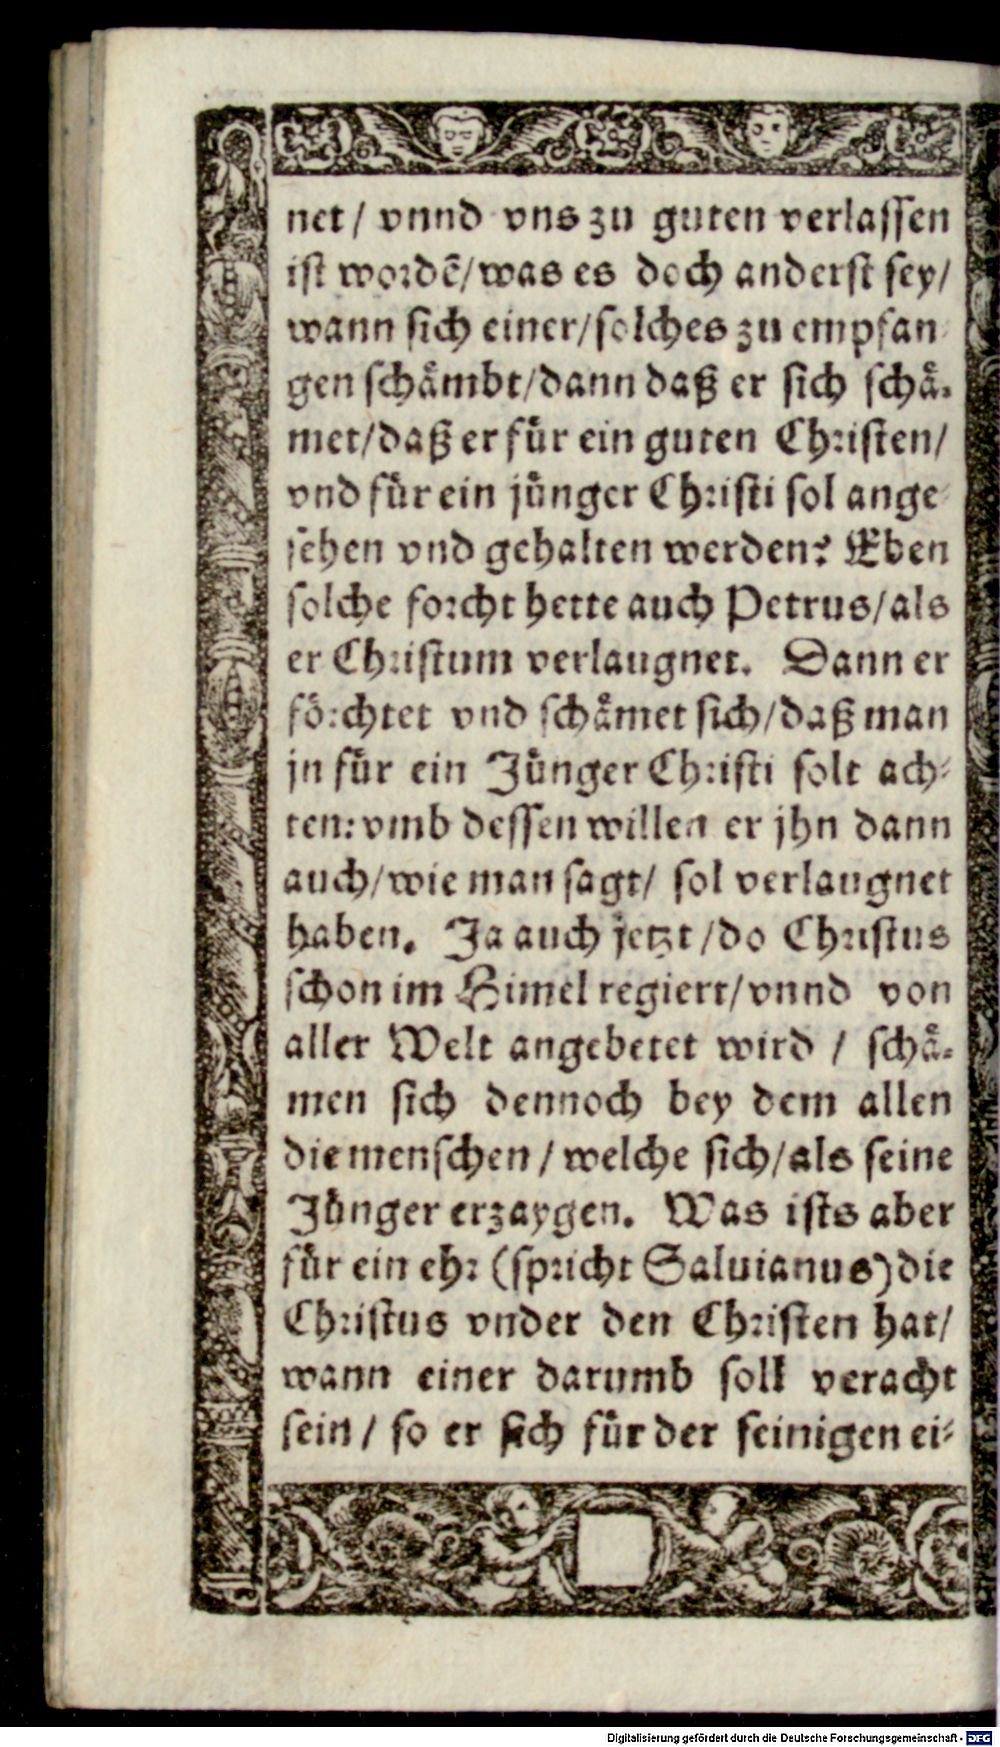 net / vnnd vns zu guten verlassen
ist wordē/was es doch anderst sey/
wann sich einer/solches zu empfan
gen schåmbt/dann daß er sich schå-
met/daß er fůr ein guten Christen/
vnd fůr ein jůnger Christi sol ange
sehen vnd gehalten werden? Eben
solche forcht hette auch Petrus/als
er Christum verlaugnet. Dann er
fôrchtet vnd schåmet sich/daß man
jn fůr ein Jůnger Christi solt ach-
ten: vmb dessen willen er jhn dann
auch/wie man sagt/ sol verlaugnet
haben. Ja auch jetzt/do Christus
schon im Himel regiert/vnnd von
aller Welt angebetet wird / schå-
men sich dennoch bey dem allen
die menschen / welche sich/als seine
Jůnger erzaygen. Was ists aber
fůr ein ehr (spricht Saluianus) die
Christus vnder den Christen hat/
wann einer darumb soll veracht
sein / so er sich fůr der seinigen ei-
Digitalisierung gefördert durch die Deutsche Forschungsgemeinschaft - DFG